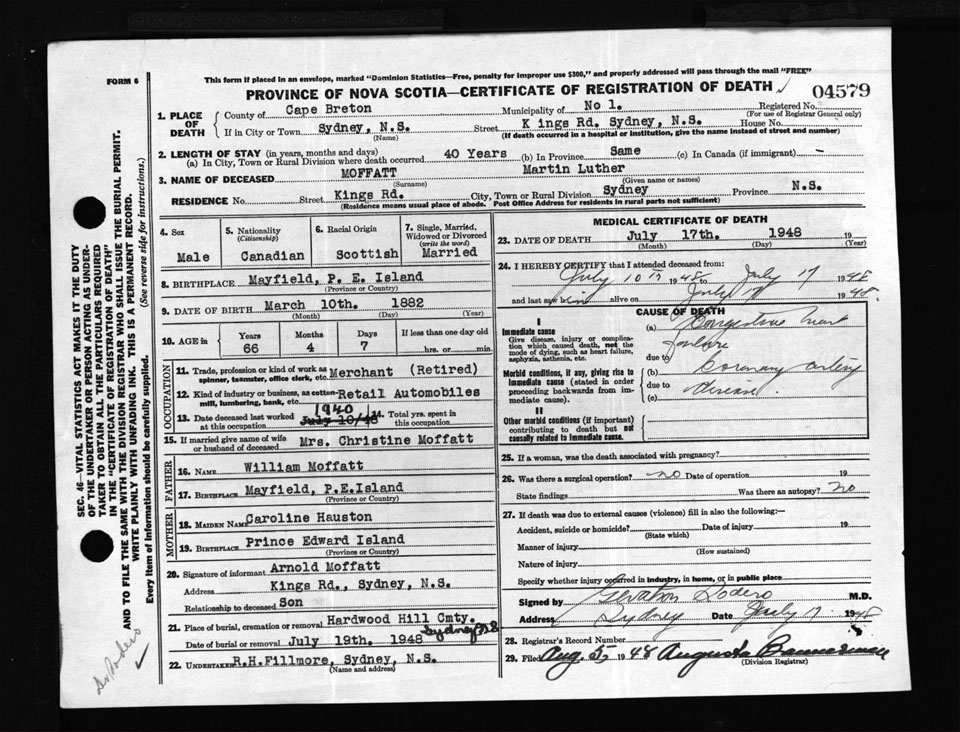 FORM 6
This form if placed in an envelope, marked "Dominion Statistics—Free, penalty for improper use $300," and properly addressed will pass through the mail "FREE"
PROVINCE OF NOVA SCOTIA—CERTIFICATE OF REGISTRATION OF DEATH
04579
1. PLACE OF DEATH
County of Cape Breton Municipality of No 1. Registered No.
(For use of Registrar General only)
If in City or Town Sydney, N.S. Street K ings Rd. Sydney, N.S. House No.
(Name) (If death occurred in a hospital or institution, give the name instead of street and number)
2. LENGTH OF STAY (in years, months and days)
(a) In City, Town or Rural Division where death occurred 40 Years (b) In Province Same (c) In Canada (if immigrant) —
3. NAME OF DECEASED MOFFATT Martin Luther
(Surname) (Given name or names)
RESIDENCE No. Street Kings Rd. City, Town or Rural Division Sydney Province N.S.
(Residence means usual place of abode. Post Office Address for residents in rural parts not sufficient)
4. Sex
Male
5. Nationality
(Citizenship)
Canadian
6. Racial Origin
Scottish
7. Single, Married, Widowed or Divorced
(write the word)
Married
8. BIRTHPLACE Mayfield, P. E. Island
(Province or Country)
9. DATE OF BIRTH March 10th. 1882
(Month) (Day) (Year)
10. AGE in
Years Months Days If less than one day old
66 4 7 hrs. or min.
OCCUPATION
11. Trade, profession or kind of work as spinner, teamster, office clerk, etc. Merchant (Retired)
12. Kind of industry or business, as cotton mill, lumbering, bank, etc. Retail Automobiles
13. Date deceased last worked at this occupation 1940 July 10/48
14. Total yrs. spent in this occupation
15. If married give name of wife or husband of deceased Mrs. Christine Moffatt
FATHER
16. NAME William Moffatt
17. BIRTHPLACE Mayfield, P.E.Island
(Province or Country)
MOTHER
18. MAIDEN NAME Caroline Hauston
19. BIRTHPLACE Prince Edward Island
(Province or Country)
20. Signature of informant Arnold Moffatt
Address Kings Rd., Sydney, N.S.
Relationship to deceased Son
21. Place of burial, cremation or removal Hardwood Hill Cmty.
Sydney
Date of burial or removal July 19th. 1948
22. UNDERTAKER R.H.Fillmore, Sydney, N.S.
(Name and address)
MEDICAL CERTIFICATE OF DEATH
23. DATE OF DEATH July 17th. 1948 19
(Month) (Day) (Year)
24. I HEREBY CERTIFY that I attended deceased from:
July 10 1948 to July 17 1948
and last saw him alive on July 17 1948.
CAUSE OF DEATH
I
Immediate cause
Give disease, injury or complication which caused death, not the mode of dying, such as heart failure, asphyxia, asthenia, etc.
(a) Congestive heart
failure
due to
Morbid conditions, if any, giving rise to immediate cause (stated in order proceeding backwards from immediate cause).
(b) Coronary artery
due to disease.
(c)
II
Other morbid conditions (if important) contributing to death but not causally related to immediate cause.
25. If a woman, was the death associated with pregnancy?
26. Was there a surgical operation? no Date of operation 19
State findings Was there an autopsy? no
27. If death was due to external causes (violence) fill in also the following:—
Accident, suicide or homicide? Date of injury 19
(State which)
Manner of injury
(How sustained)
Nature of injury
Specify whether injury occurred in industry, in home, or in public place
Signed by M.D.
Address Sydney Date July 1948
28. Registrar's Record Number
29. Filed Aug. 5, 1948 Augusta Bannerman
(Division Registrar)
SEC. 46—VITAL STATISTICS ACT MAKES IT THE DUTY
OF THE UNDERTAKER OR PERSON ACTING AS UNDER-
TAKER TO OBTAIN ALL THE PARTICULARS REQUIRED
IN THE "CERTIFICATE OF REGISTRATION OF DEATH"
AND TO FILE THE SAME WITH THE DIVISION REGISTRAR WHO SHALL ISSUE THE BURIAL PERMIT.
WRITE PLAINLY WITH UNFADING INK. THIS IS A PERMANENT RECORD.
Every item of Information should be carefully supplied. (See reverse side for instructions.)